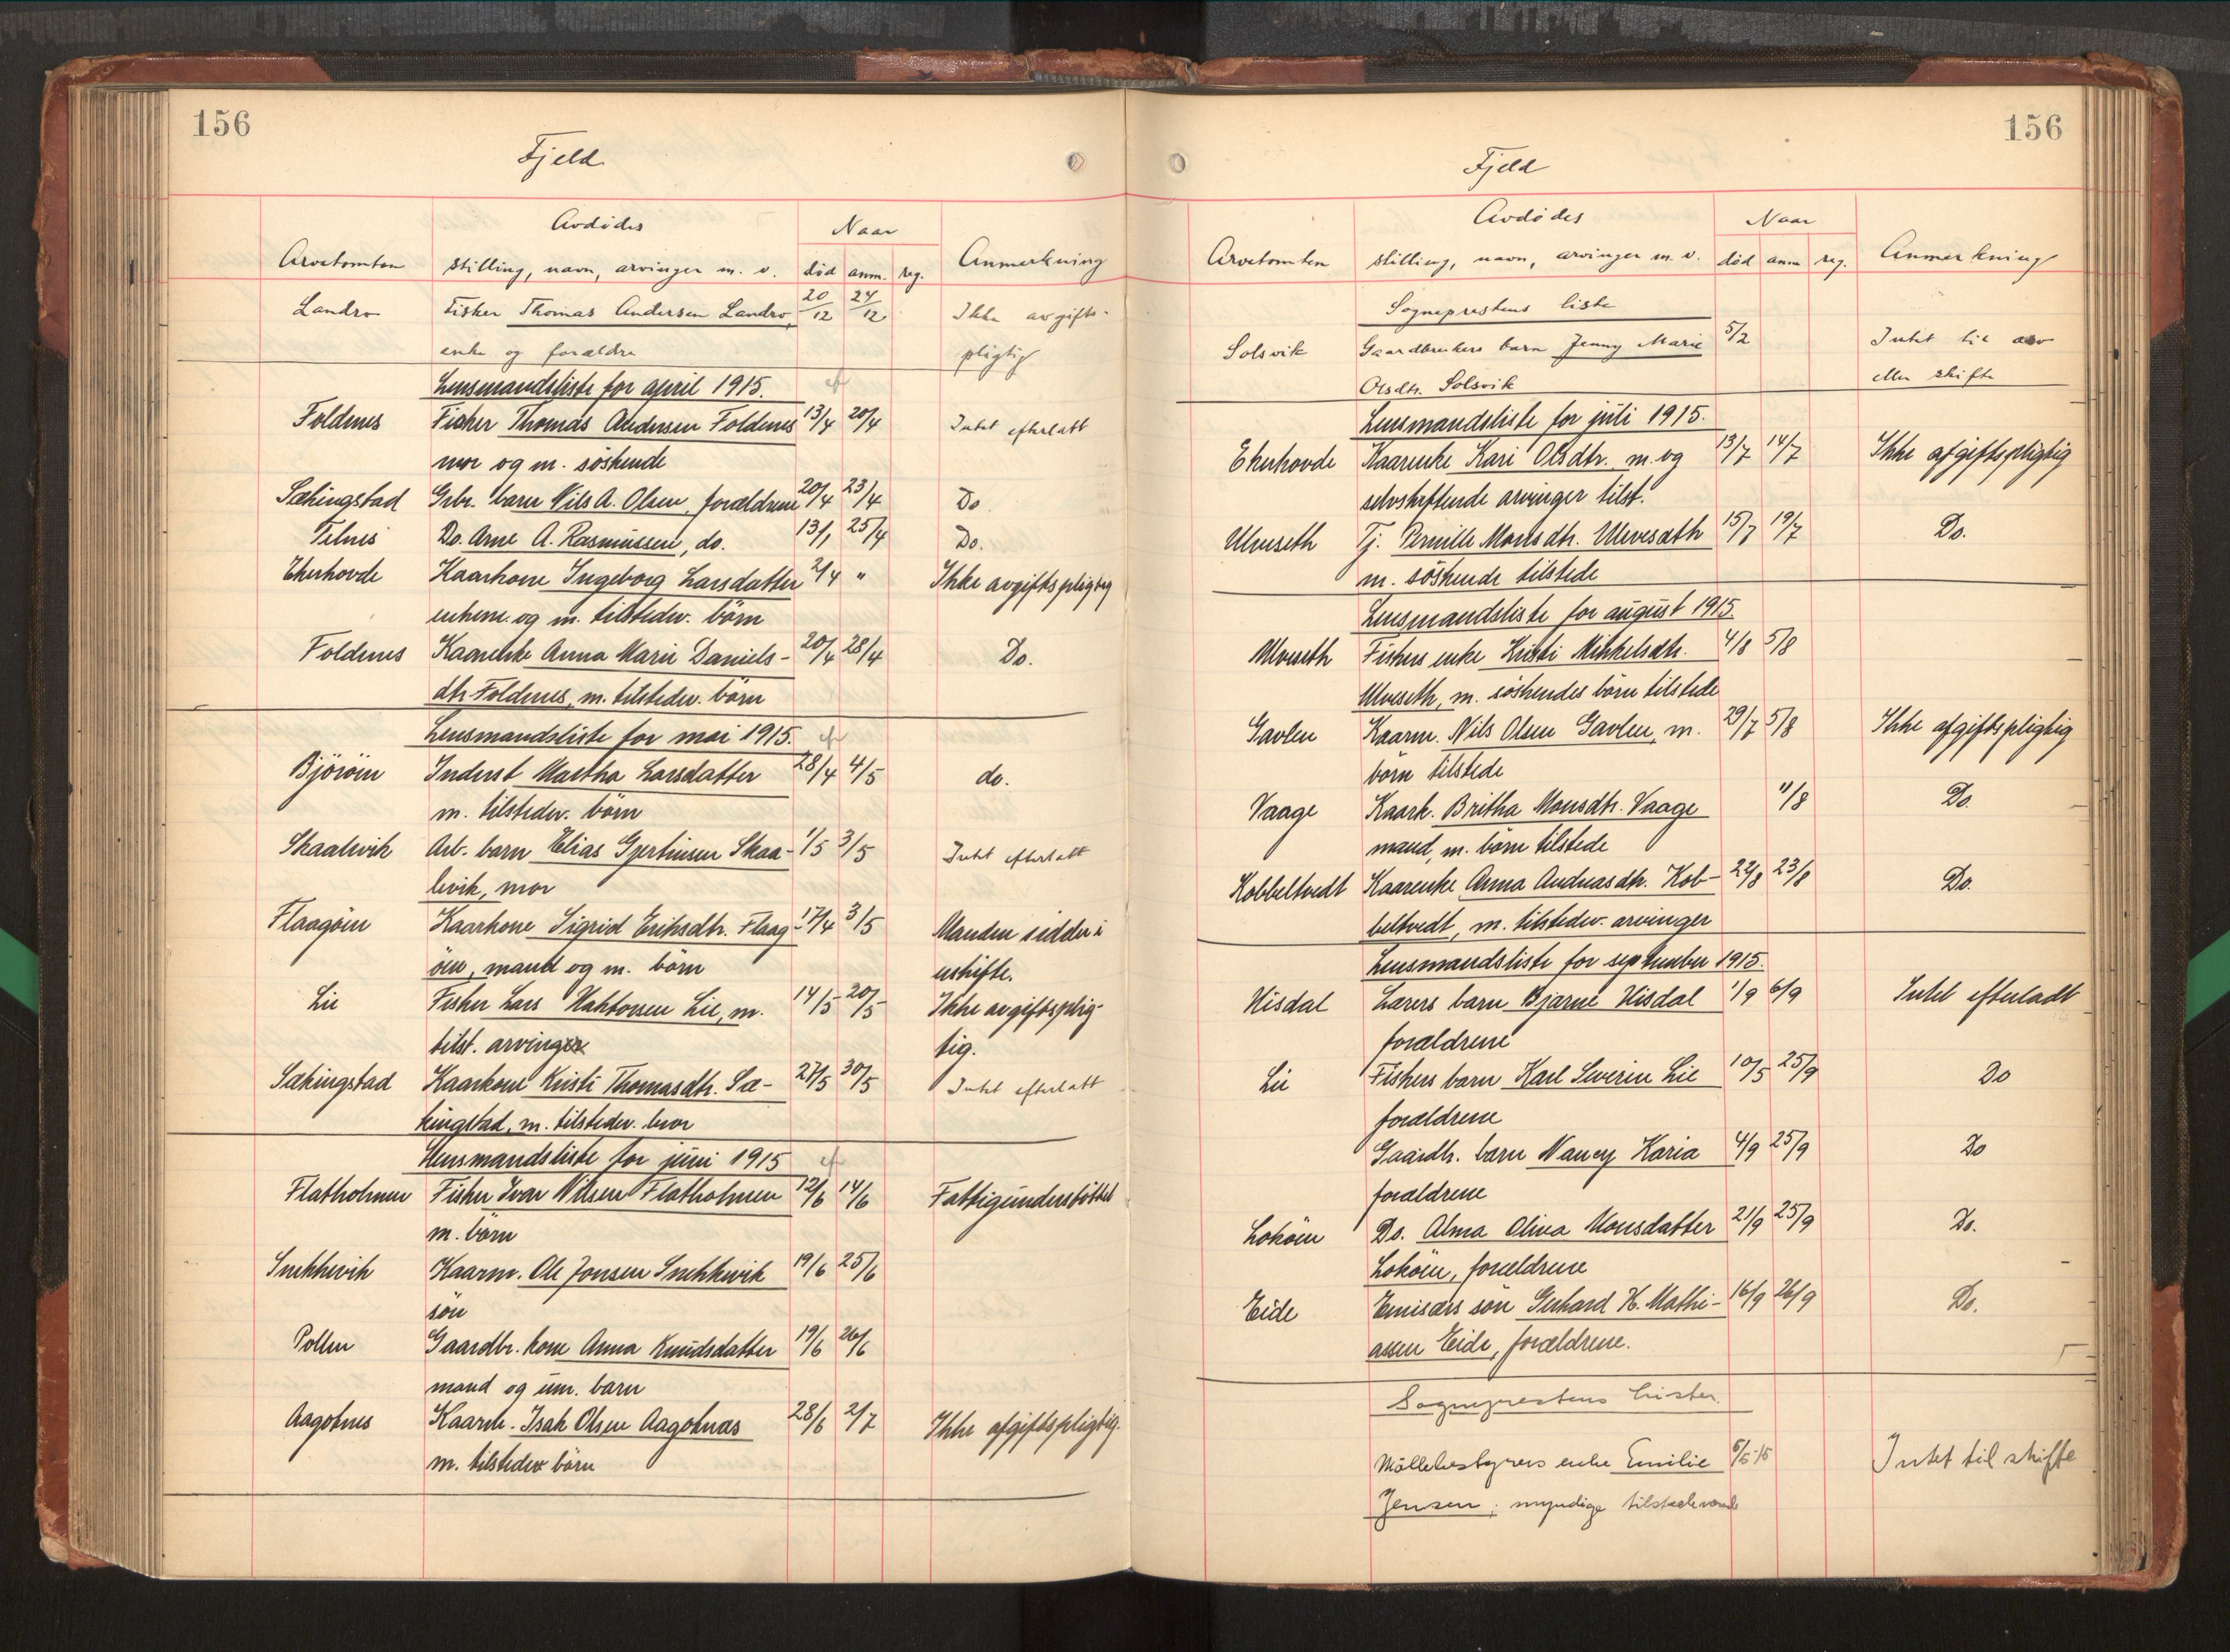 156
Fjeld
Avdødes Naar
Arvetomten stilling, navn, arvinger m. v. død anm. reg. Anmerkning
Landro Fisker Thomas Andersen Landro, 20/12 24/12 Ikke avgifts-
enke og forældre pligtig
Lensmandsliste for april 1915.
Foldnes Fisker Thomas Andersen Foldnes 13/4 20/4 Intet efterlatt
mor og m. söskende
Sækingstad Grbr. barn Nils A. Olsen, forældrene 20/4 23/4 Do
Telnes Do. Arne A. Rasmussen, do. 13/1 25/4 Do.
Ekerhovde Kaarkone Ingeborg Larsdatter 2/4 " Ikke avgiftspligtig
enkem. og m. tilstedev. börn
Foldnes Kaarenke Anna Marie Daniels- 20/4 28/4 Do.
dtr Foldnes, m. tilstedev. börn
Lensmandsliste for mai 1915.
Björöen Inderst Martha Larsdatter 28/4 4/5 do.
m. tilstedev. börn
Skaalevik Arb. barn Elias Gjertinsen Skaa- 1/5 3/5 Intet efterlatt
levik, mor
Flaagöen Kaarkone Sigrid Eriksdtr. Flaag- 17/4 3/5 Manden sidder i
öen, mand og m. börn uskifte.
Lie Fisker Lars Haktorsen Lie, m. 14/5 20/5 Ikke avgiftsplig-
tilst. arvinger tig.
Sækingstad Kaarkone Kristi Thomasdtr. Sæ- 27/5 30/5 Intet efterlatt
kingstad, m. tilstedev. bror
Lensmandsliste for juni 1915
Flatholmen Fisker Ivar Nilsen Flatholmen 12/6 14/6 Fattigunderstöttet
m. börn
Snekkevik Kaarm. Ole Jonsen Snekkevik 19/6 25/6
sön
Pollen Gaardbr. kone Anna Knudsdatter 19/6 26/6
mand og um. barn
Aagotnes Kaarm. Isak Olsen Aagotnæs 28/6 2/7 Ikke afgiftspligtig.
m. tilstedev börn
156
Fjeld
Avdødes Naar
Arvetomten stilling, navn, arvinger m. v. død anm reg. Anmerkning
Sogneprestens liste
Solsvik Gaardbrukers barn Jenny Marie 5/2 Intet til arv
Olsdtr. Solsvik eller skifte
Lensmandsliste for juli 1915.
Ekerhovde Kaarenke Kari Olsdtr. m. og 13/7 14/7 Ikke afgiftspligtig
selvskiftende arvinger tilst.
Ulveseth Tj. Pernille Monsdtr. Ulvesæth 15/7 19/7 Do.
m. söskende tilstede
Lensmandsliste for august 1915.
Ulveseth Fiskers enke Kristi Mikkelsdtr. 4/8 5/8
Ulveseth, m. söskendes börn tilstede
Gavlen Kaarm. Nils Olsen Gavlen, m. 29/7 5/8 Ikke afgiftspligtig
börn tilstede
Vaage Kaark. Britha Monsdtr. Vaage 11/8 Do.
mand, m. börn tilstede
Kobbeltvedt Kaarenke Anna Andreasdtr. Kob- 22/8 23/8 Do.
beltvedt, m. tilstedev. arvinger
Lensmandsliste for september 1915.
Hisdal Lærers barn Bjarne Hisdal 1/9 6/9 Intet efterladt
forældrene
Lie Fiskers barn Karl Severin Lie 10/5 25/9 Do
forældrene
Gaardbr. barn Nancy Karia 4/9 25/9 Do
forældrene
Loköen Do. Alma Oliva Monsdatter 21/9 25/9 Do.
Loköen, forældrene
Eide Emisærs sön Gerhard K. Mathi- 16/9 26/9 Do.
assen Eide, forældrene.
Sogneprestens lister.
Möllebestyrers enke Emilie 6/5-15 Intet til skifte
Jensen; myndige tilstedeværende